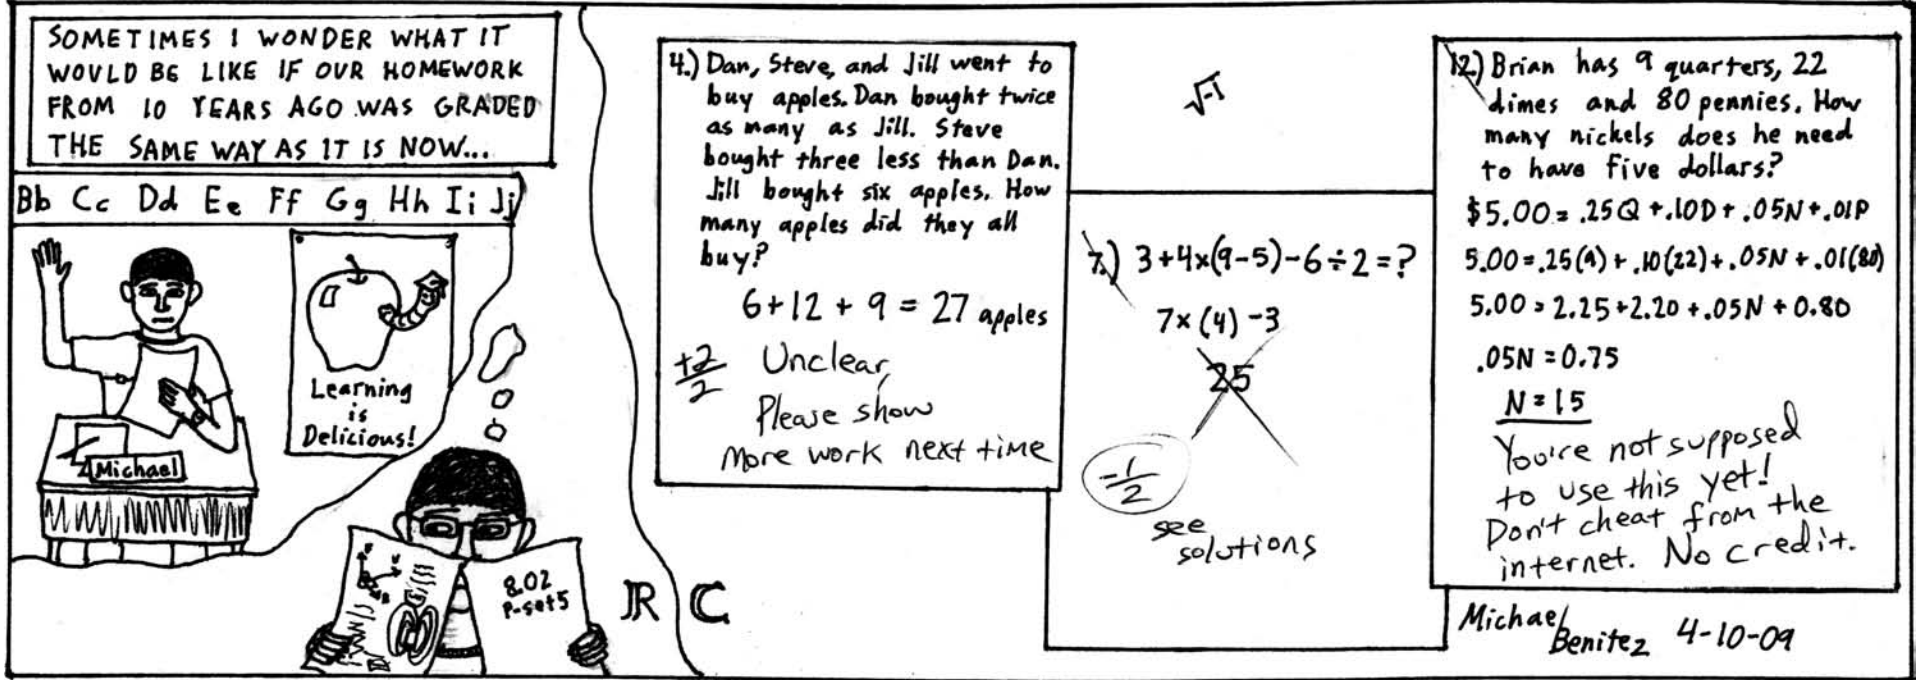 SOMETIMES I WONDER WHAT IT
WOULD BE LIKE IF OUR HOMEWORK
FROM 10 YEARS AGO WAS GRADED
THE SAME WAY AS IT IS NOW...
Bb Cc Dd Ee Ff Gg Hh Ii Jj
Learning
is
Delicious!
Michael
8.02
P-set5
ℝ ℂ
4.) Dan, Steve, and Jill went to
buy apples. Dan bought twice
as many as Jill. Steve
bought three less than Dan.
Jill bought six apples. How
many apples did they all
buy?
6+12+9=27 apples
+2/2
Unclear,
Please show
More work next time
√-1
7.) 3+4×(9-5)-6÷2=?
7×(4)-3
25
-1/2
see
solutions
12.) Brian has 9 quarters, 22
dimes and 80 pennies. How
many nickels does he need
to have five dollars?
$5.00=.25Q+.10D+.05N+.01P
5.00=.25(9)+.10(22)+.05N+.01(80)
5.00=2.25+2.20+.05N+0.80
.05N=0.75
N=15
You're not supposed
to use this yet!
Don't cheat from the
internet. No credit.
Michael
Benitez 4-10-09